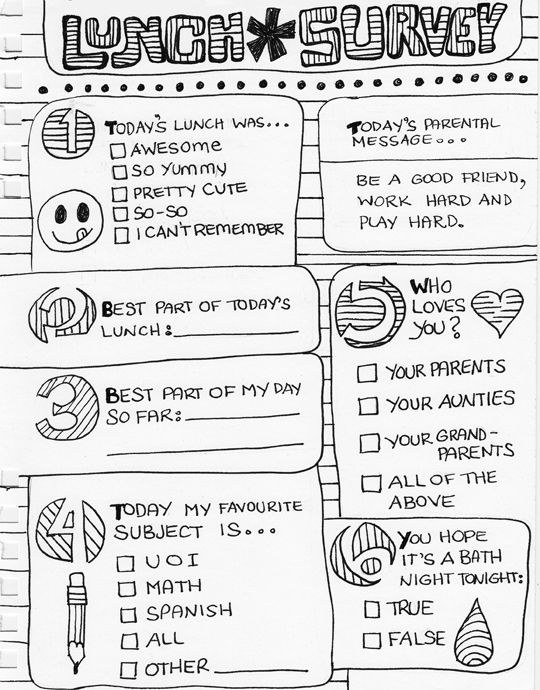 LUNCH * SURVEY
1
TODAY'S LUNCH WAS...
AWESOME
SO YUMMY
PRETTY CUTE
SO-SO
I CAN'T REMEMBER
TODAY'S PARENTAL
MESSAGE...
BE A GOOD FRIEND,
WORK HARD AND
PLAY HARD.
2
BEST PART OF TODAY'S
LUNCH:
3
BEST PART OF MY DAY
SO FAR:
4
TODAY MY FAVOURITE
SUBJECT IS...
UOI
MATH
SPANISH
ALL
OTHER
5
WHO
LOVES
YOU?
YOUR PARENTS
YOUR AUNTIES
YOUR GRAND-
PARENTS
ALL OF THE
ABOVE
6
YOU HOPE
IT'S A BATH
NIGHT TONIGHT:
TRUE
FALSE